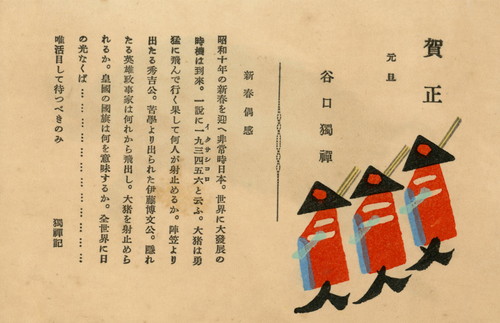 賀正
元旦
谷口獨禪
新春偶感
昭和十年の新春を迎へ非常時日本。世界に大發展の
時機は到來。一説に一九三四五六と云ふ。大猪は勇
イクサシコロ
猛に飛んで行く果して何人が射止めるか。陣笠より
出たる秀吉公。苦學より出られた伊藤博文公。隱れ
たる英雄政事家は何れから飛出し。大猪を射止めら
れるか。皇國の國旗は何を意味するか。全世界に日
の光なくば………………………………
唯活目して待つべきのみ
獨禪記